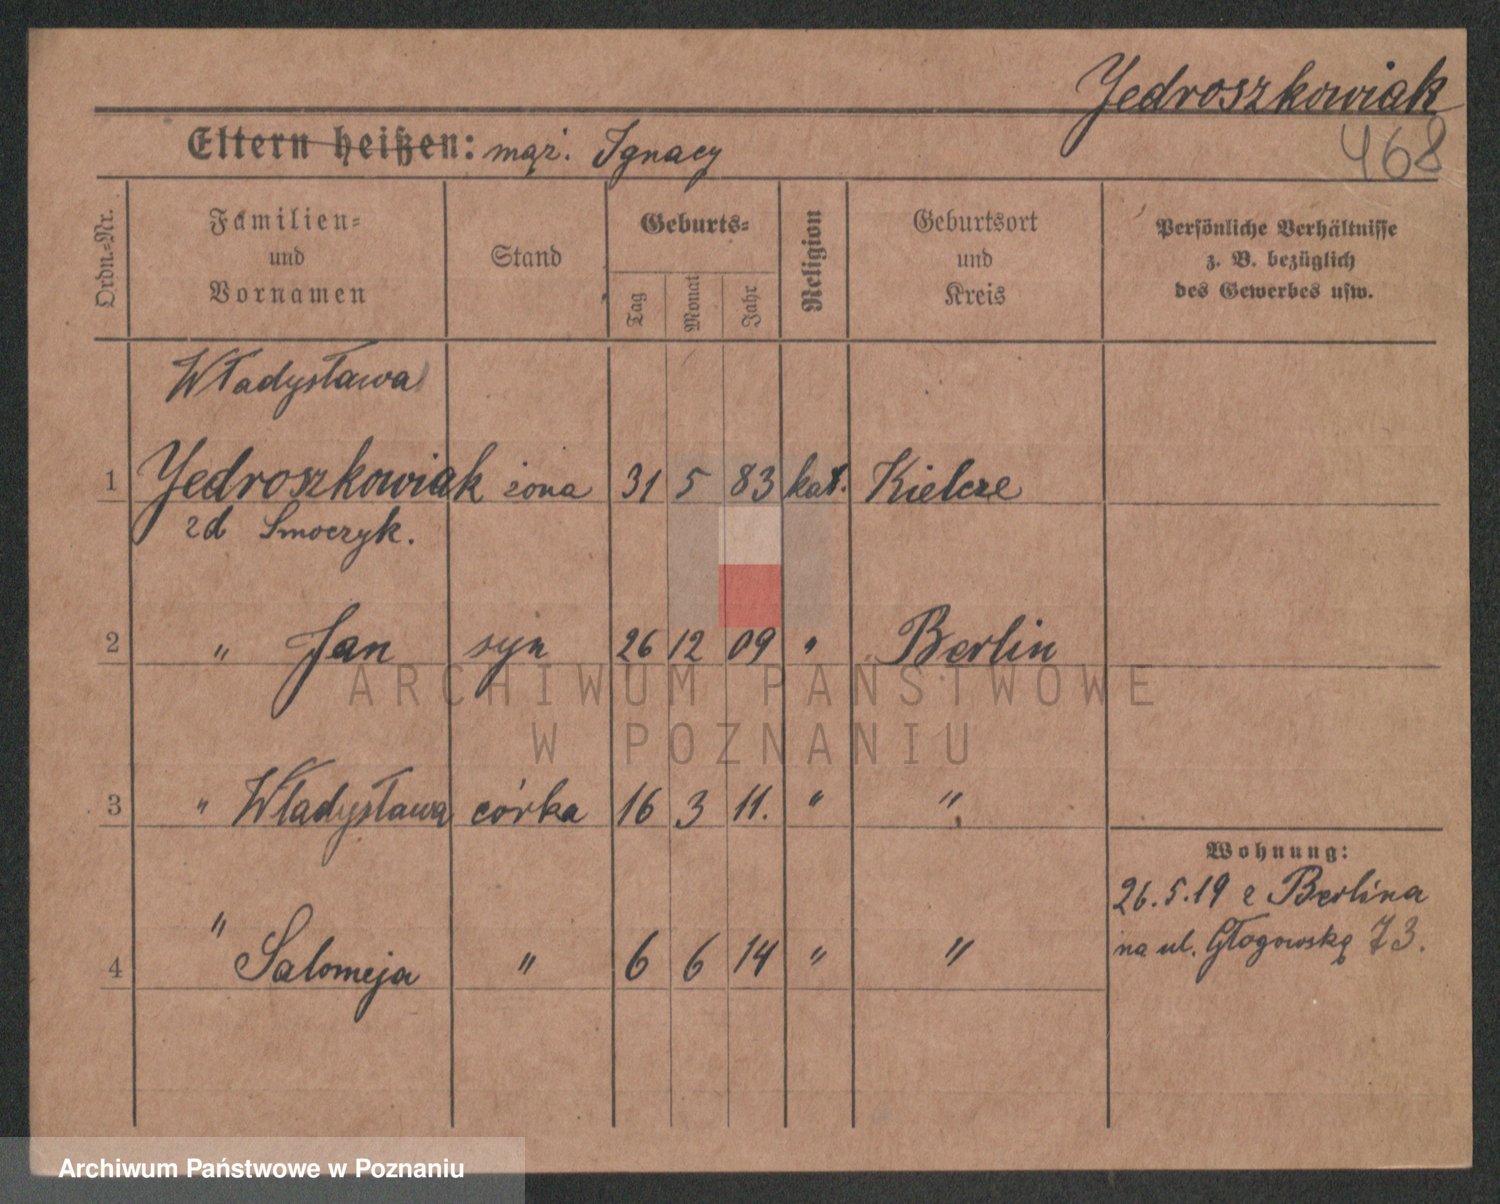 Jedroszkowiak
468
Eltern heißen: mąż. Ignacy
Ordn.-Nr.
Familien-
und
Vornamen
Stand
Geburts-
Tag
Monat
Jahr
Religion
Geburtsort
und
Kreis
Persönliche Verhältnisse
z. B. bezüglich
des Gewerbes usw.
Władysława
1 Jedroszkowiak żona 31 5 83 kat. Kielcze
zd Smoczyk.
2 " Jan syn 26 12 09 " Berlin
ARCHIWUM PAŃSTWOWE
W POZNANIU
3 " Władysława córka 16 3 11. " "
Wohnung:
26.5.19 z Berlina
na ul. Głogowską 73.
4 " Salomeja " 6 6 14 " "
Archiwum Państwowe w Poznaniu